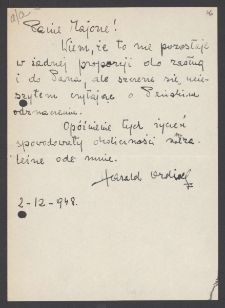 16
Panie Majorze!
Wiem, że to nie pozostaje
w żadnej proporcji do zasług
i do Pana, ale szczerze się ucie-
szyłem czytając o Pańskim
odznaczeniu.
Opóźnienie tych życzeń
spowodowały okoliczności nieza-
leżne ode mnie.
Harald
2-12-948.